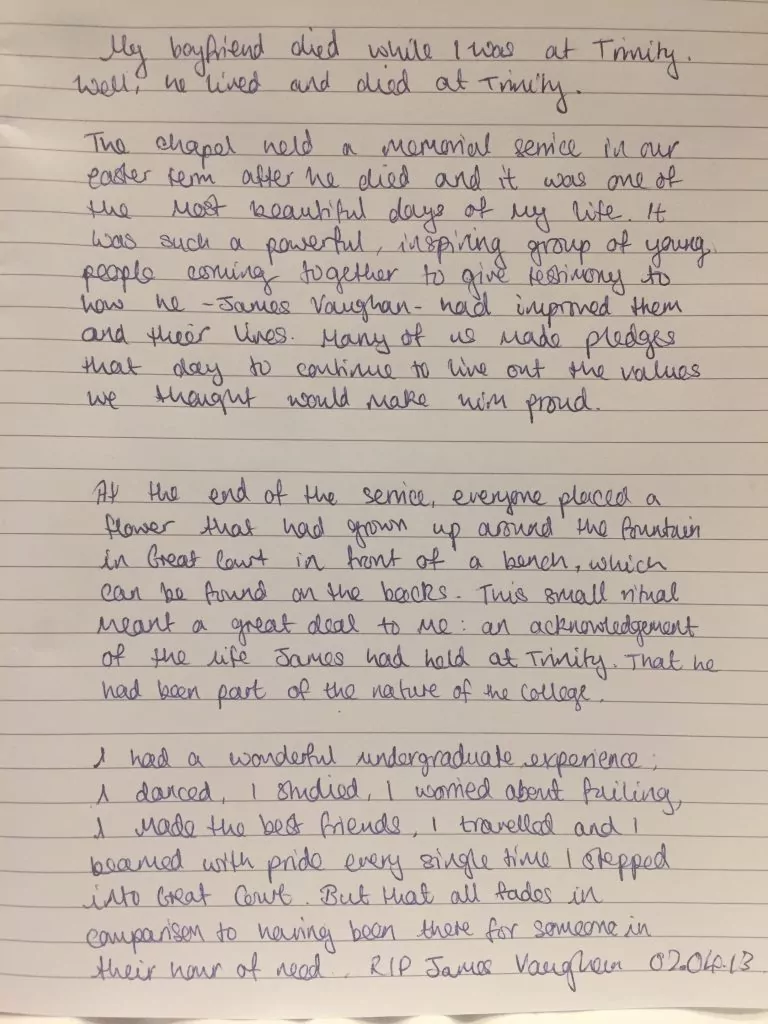 My boyfriend died while I was at Trinity.
Well, he lived and died at Trinity.
The chapel held a memorial service in our
easter term after he died and it was one of
the most beautiful days of my life. It
was such a powerful, inspiring group of young
people coming together to give testimony to
how he - James Vaughan - had improved them
and their lives. Many of us made pledges
that day to continue to live out the values
we thought would make him proud.
At the end of the service, everyone placed a
flower that had grown up around the fountain
in Great Court in front of a bench, which
can be found on the backs. This small ritual
meant a great deal to me: an acknowledgement
of the life James had held at Trinity. That he
had been part of the nature of the college.
I had a wonderful undergraduate experience;
I danced, I studied, I worried about failing,
I made the best friends, I travelled and I
beamed with pride every single time I stepped
into Great Court. But that all fades in
comparison to having been there for someone in
their hour of need. RIP James Vaughan 02.04.13